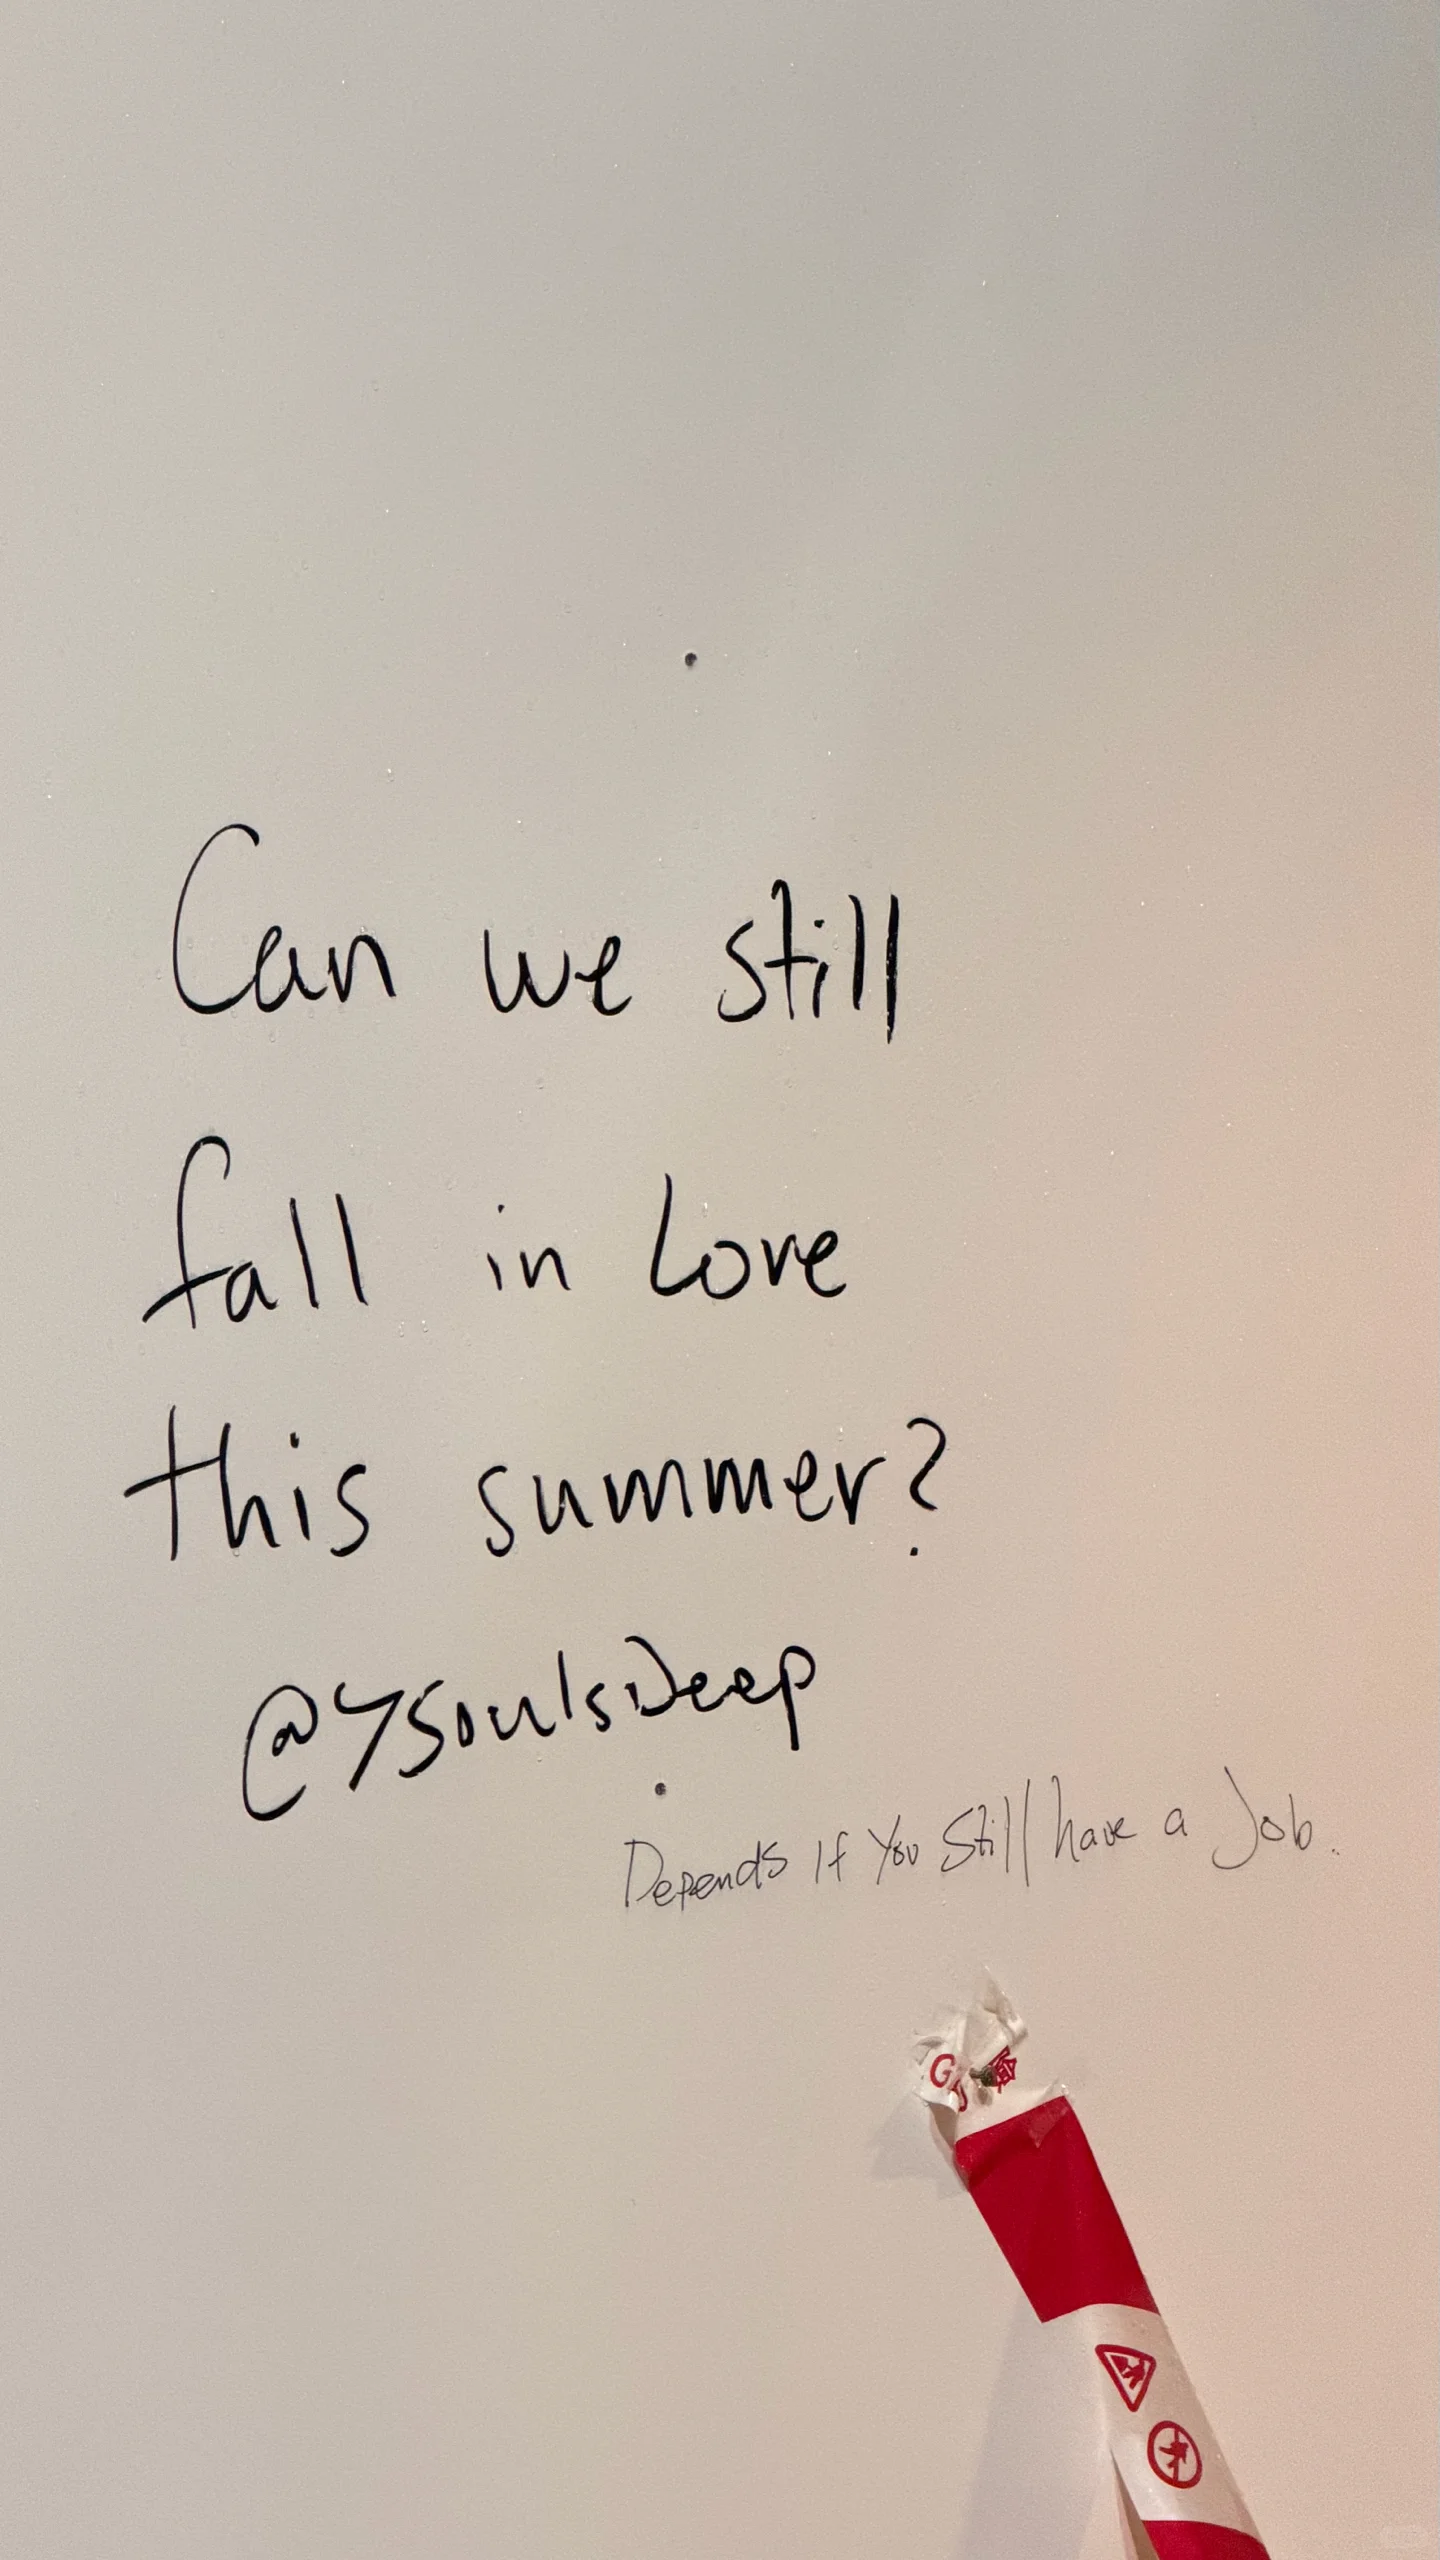 Can we still
fall in Love
this summer?
@YsoulsDeep
Depends If You Still have a Job.